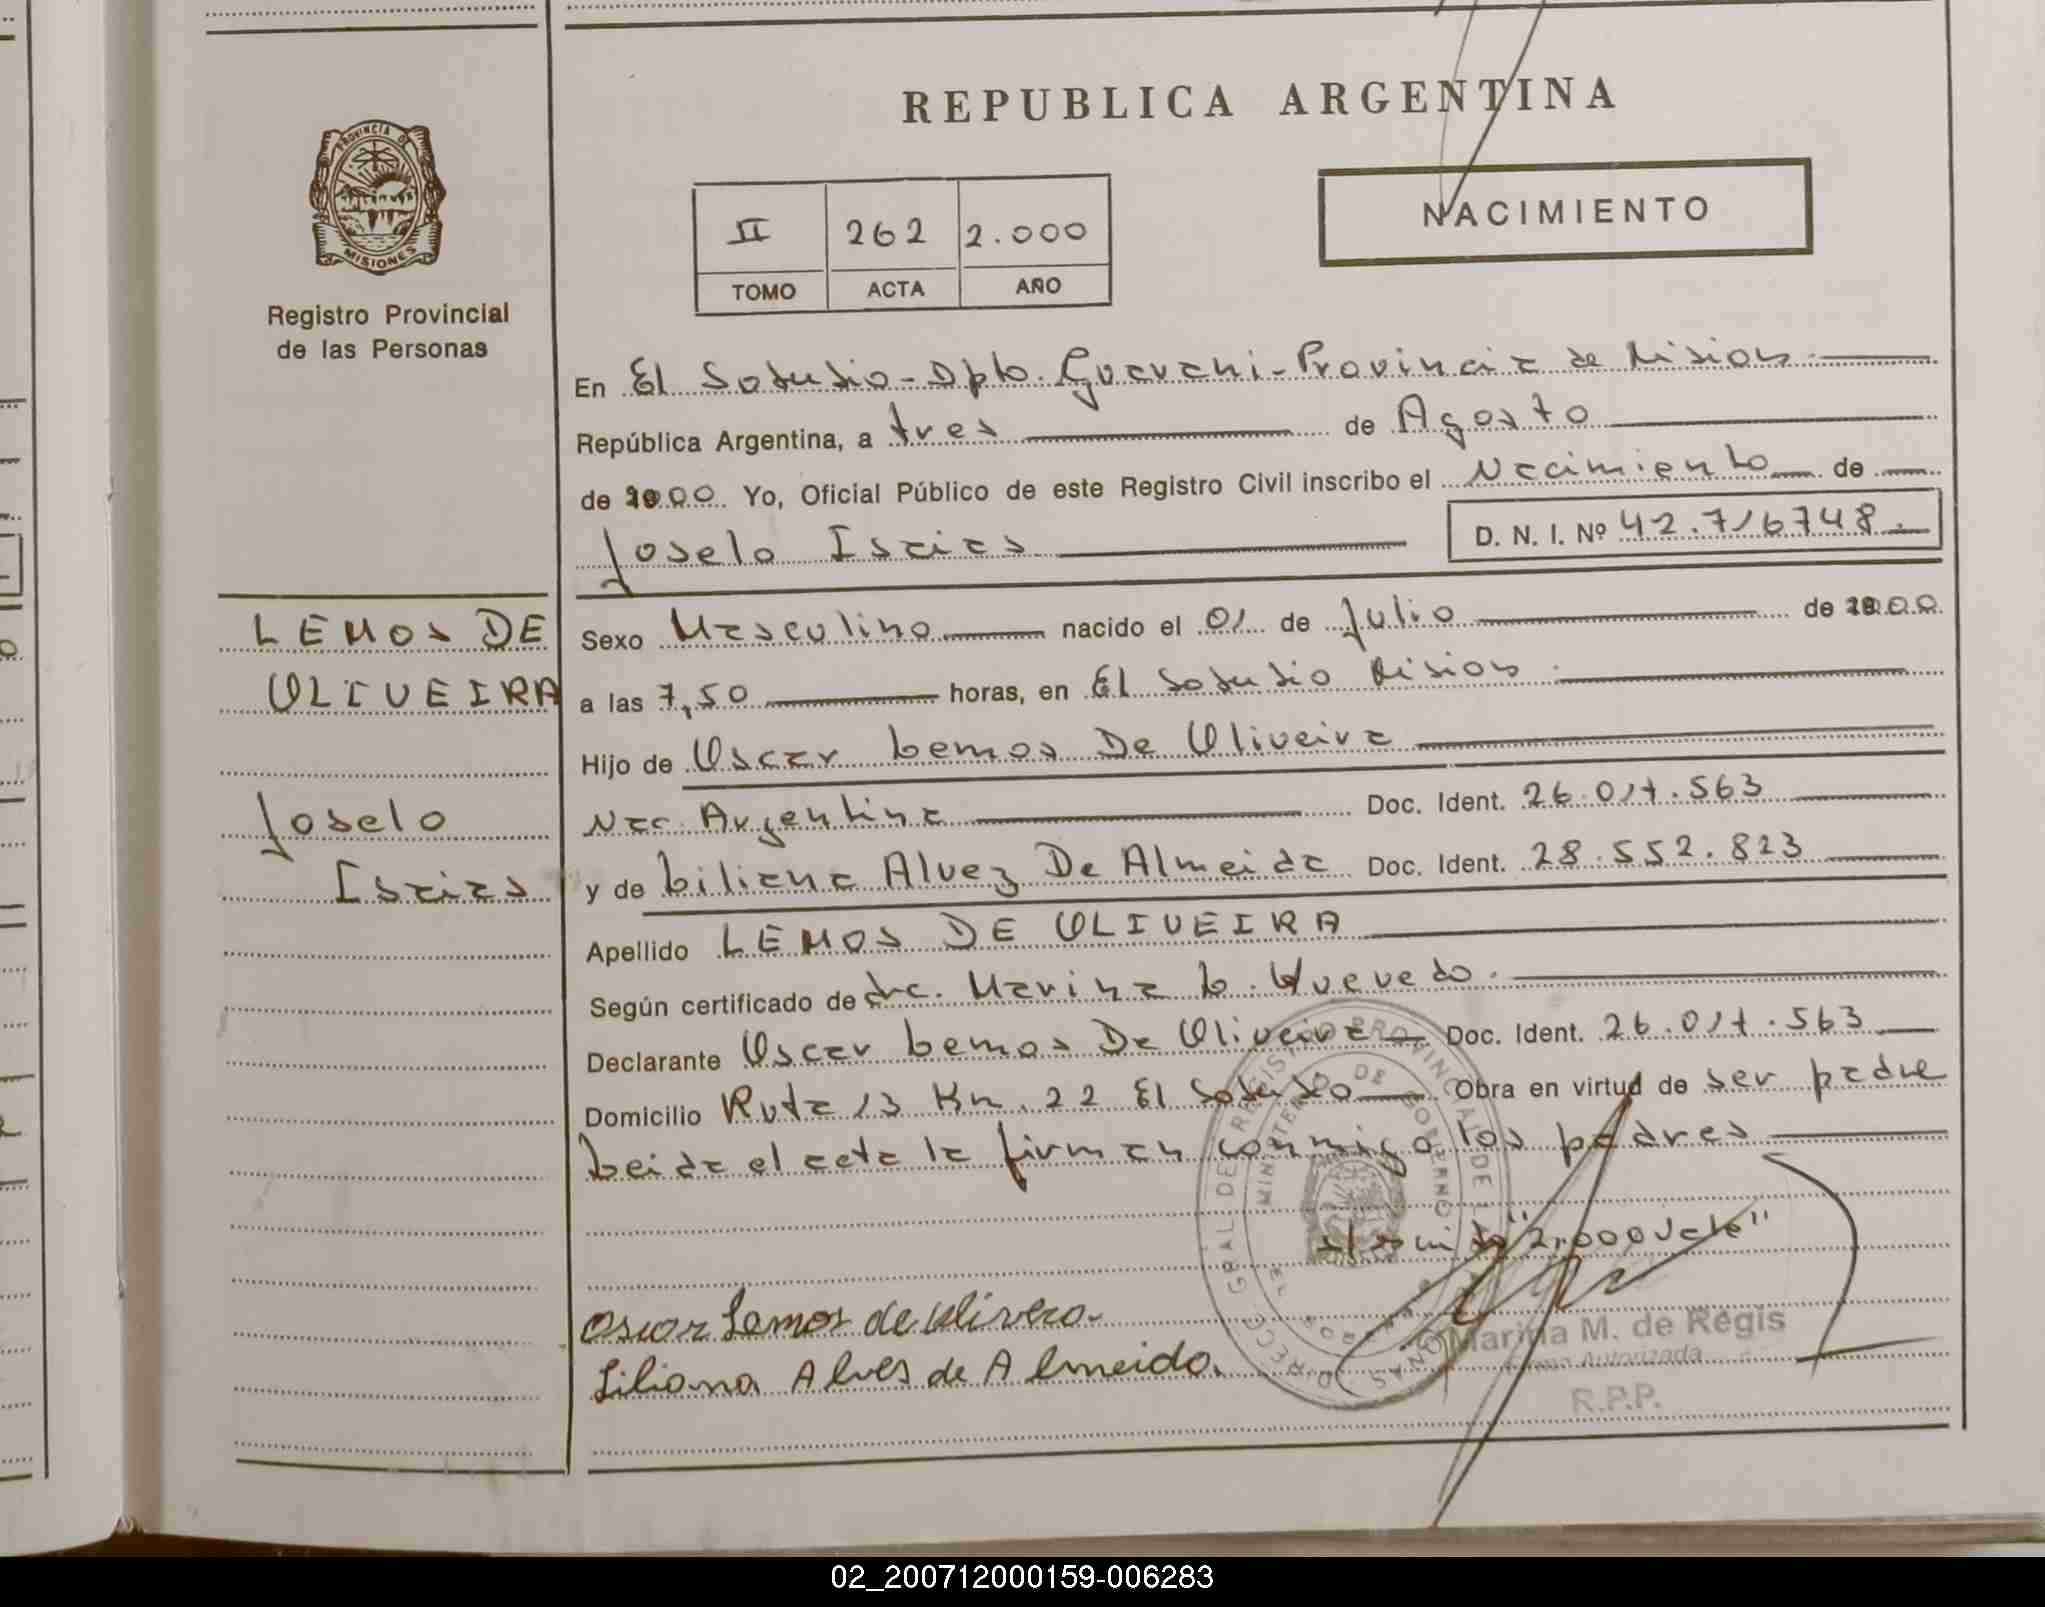 REPUBLICA ARGENTINA
PROVINCIA DE
MISIONES
Registro Provincial
de las Personas
II 262 2.000
TOMO ACTA AÑO
NACIMIENTO
En El Soberbio - Dpto. Guarani - Provincia de Misiones
República Argentina, a tres de Agosto
de 2000 Yo, Oficial Público de este Registro Civil inscribo el Nacimiento de
Joselo Isaias D. N. I. Nº 42.716748
LEMOS DE
OLIVEIRA
Joselo
Isaias
Sexo Masculino nacido el 01 de Julio de 2000
a las 7,50 horas, en El Soberbio Misiones
Hijo de Oscar Lemos De Oliveira
Nac. Argentina Doc. Ident. 26.017.563
y de Liliana Alvez De Almeida Doc. Ident. 28.552.823
Apellido LEMOS DE OLIVEIRA
Según certificado de Marina L.
Declarante Oscar Lemos De Oliveira Doc. Ident. 26.017.563
Domicilio Ruta 13 Km. 22 El Soberbio Obra en virtud de ser padre
Leida el acta la firman conmigo los padres
"2.000 vale"
Oscar Lemos de Olivera
Liliana Alves de Almeida
Marina M. de Regis
Firma Autorizada
R.P.P.
02_200712000159-006283